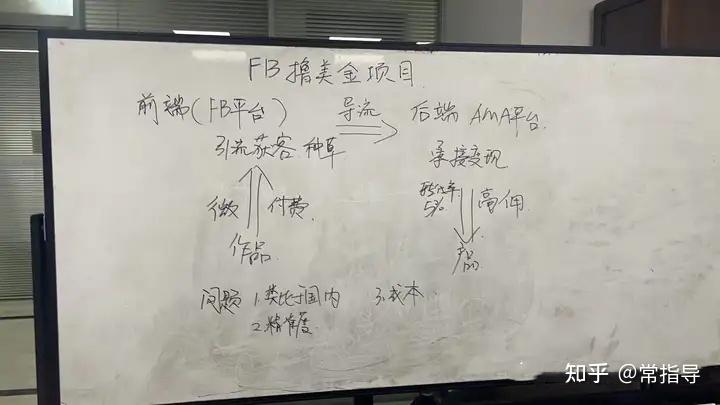 FB撸美金项目
前端(FB平台) 导流 后端 AMA平台
引流获客 种草 承接变现
微 付费 转化率 5% 高佣
作品 产品
问题 1.类比于国内 3.成本
2.精准度
知乎 @常指导